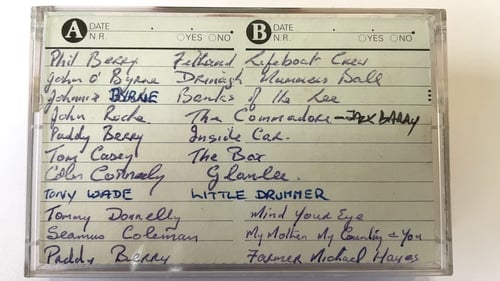 A DATE N.R. ○YES ○NO B DATE N.R. ○YES ○NO
Phil Berry Fethard Lifeboat Crew
John O' Byrne Drinagh Mummers Ball
Johnnie BYRNE Banks of the Lee
John Roche The Commadore - JACK BARRY
Paddy Berry Inside Car.
Tom Casey The Box
Colin Connealy Glanlee.
TONY WADE LITTLE DRUMMER
Tommy Donnelly Mind Your Eye
Seamus Coleman My Mother My Country & You
Paddy Berry Farmer Michael Hayes